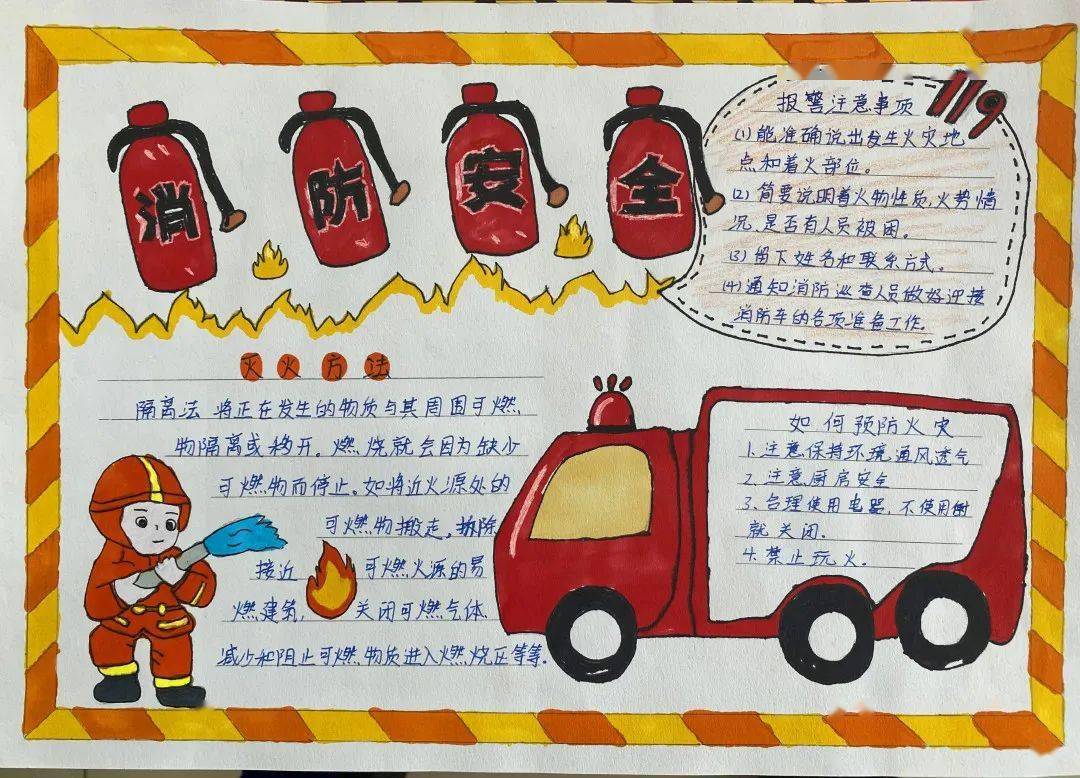 消防安全
119
报警注意事项
(1)能准确说出发生火灾地
点和着火部位。
(2)简要说明着火物性质,火势情
况,是否有人员被困。
(3)留下姓名和联系方式。
(4)通知消防巡查人员做好迎接
消防车的各项准备工作。
灭火方法
隔离法 将正在发生的物质与其周围可燃
物隔离或移开。燃烧就会因为缺少
可燃物而停止。如将近火源处的
可燃物搬走,拆除
接近 可燃火源的易
燃建筑, 关闭可燃气体.
减少和阻止可燃物质进入燃烧正等等.
如何预防火灾
1.注意保持环境通风透气
2.注意厨房安全
3、合理使用电器,不使用时
就关闭.
4.禁止玩火.